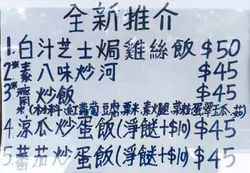 全新推介
1.白汁芝士焗雞絲飯 $50
2.*素 八味炒河 $45
3.*齋 炒飯 $45
(材料:紅蘿蔔豆腐粟米素火腿菜粒蛋翠玉瓜
4 涼瓜炒蛋飯(淨餸+$10) $45
5.蕃茄炒蛋飯(淨餸+$10) $45